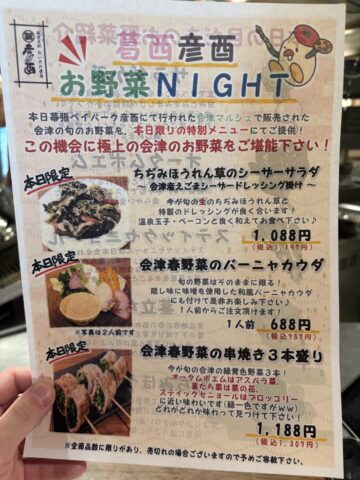 彦酉
葛西彦酉
お野菜NIGHT
本日幕張ベイパーク彦酉にて行われた会津マルシェで販売された
会津の旬のお野菜を、本日限りの特別メニューにてご提供!
この機会に極上の会津のお野菜をご堪能下さい!
本日限定
ちぢみほうれん草のシーザーサラダ
～会津産えごまシーザードレッシング掛け～
今が旬の生のちぢみほうれん草と
特製のドレッシングが良く合います!
温泉玉子・ベーコンと良く和えてお召し上がり下さい♪
1,088円
(税込1,197円)
本日限定
会津春野菜のバーニャカウダ
旬の野菜はそのままに限る!
隠し味に味噌を使用した和風バーニャカウダ
にも付けて是非お楽しみ下さい♪
1人前からご注文頂けます!
1人前 688円
(税込757円)
※写真は2人前です
本日限定
会津春野菜の串焼き3本盛り
今が旬の会津の緑黄色野菜3本!
オータムポエムはアスパラ菜、
茎たち菜は菜の花、
スティックセニョールはブロッコリー
に近い味わいです(緑一色ですがww)
どれがどれか味わって見つけて下さい!
1,188円
(税込1,307円)
※全商品数に限りがあり、売切れの場合ございますので予めご容赦下さい。